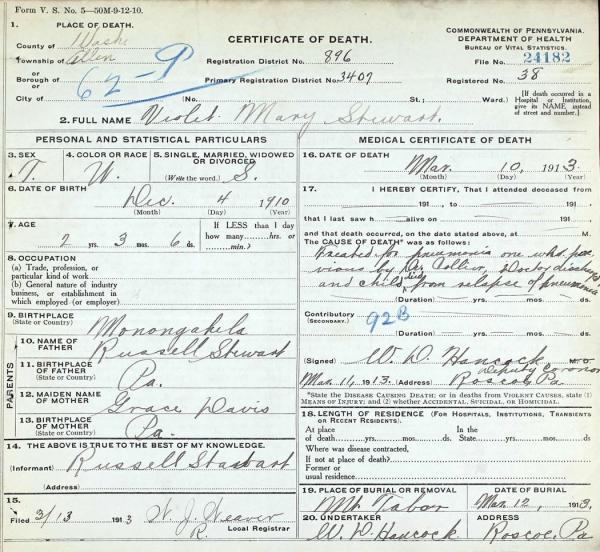 Form V. S. No. 5—50M-9-12-10.
1. PLACE OF DEATH.
County of Wash
Township of Allen
or
Borough of
or
City of
62-9
CERTIFICATE OF DEATH.
Registration District No. 896
Primary Registration District No. 3407
(No. St.; Ward.)
COMMONWEALTH OF PENNSYLVANIA.
DEPARTMENT OF HEALTH
BUREAU OF VITAL STATISTICS.
File No. 24182
Registered No. 38
[If death occurred in a Hospital or Institution, give its NAME, instead of street and number.]
2. FULL NAME Violet Mary Stewart.
PERSONAL AND STATISTICAL PARTICULARS
3. SEX
4. COLOR OR RACE
W.
5. SINGLE, MARRIED, WIDOWED OR DIVORCED
(Write the word.) S.
6. DATE OF BIRTH
Dec. 4 1910
(Month) (Day) (Year)
7. AGE
2 yrs. 3 mos. 6 ds.
If LESS than 1 day how many hrs. or min.?
8. OCCUPATION
(a) Trade, profession, or particular kind of work
(b) General nature of industry business, or establishment in which employed (or employer)
9. BIRTHPLACE
(State or Country)
Monongahela
PARENTS
10. NAME OF FATHER
Russell Stewart
11. BIRTHPLACE OF FATHER
(State or Country)
Pa.
12. MAIDEN NAME OF MOTHER
Grace Davis
13. BIRTHPLACE OF MOTHER
(State or Country)
Pa.
14. THE ABOVE IS TRUE TO THE BEST OF MY KNOWLEDGE.
(Informant) Russell Stewart
(Address)
15.
Filed 3/13 1913 W. J. Weaver
R. Local Registrar
MEDICAL CERTIFICATE OF DEATH
16. DATE OF DEATH
Mar. 10, 1913.
(Month) (Day) (Year)
17. I HEREBY CERTIFY, That I attended deceased from
191 , to 191
that I last saw h alive on 191
and that death occurred, on the date stated above, at M.
The CAUSE OF DEATH* was as follows:
Treated for pneumonia one wk. pre
vious by Dr. Collier, Doctor discharged
and child died from relapse of pneumonia
(Duration) yrs. mos. ds.
Contributory
(SECONDARY.)
92B
(Duration) yrs. mos. ds.
(Signed) W. D. Hancock M.D.
Deputy Coroner
Mar. 11, 1913. (Address) Roscoe, Pa
*State the DISEASE CAUSING DEATH; or in deaths from VIOLENT CAUSES, state (1) MEANS OF INJURY; and (2) whether ACCIDENTAL, SUICIDAL, OR HOMICIDAL.
18. LENGTH OF RESIDENCE (FOR HOSPITALS, INSTITUTIONS, TRANSIENTS OR RECENT RESIDENTS).
At place of death yrs. mos. ds. In the State yrs. mos. ds.
Where was disease contracted,
if not at place of death?
Former or
usual residence
19. PLACE OF BURIAL OR REMOVAL
Mt. Tabor
DATE OF BURIAL
Mar. 12, 1913.
20. UNDERTAKER
W. D. Hancock
ADDRESS
Roscoe, Pa